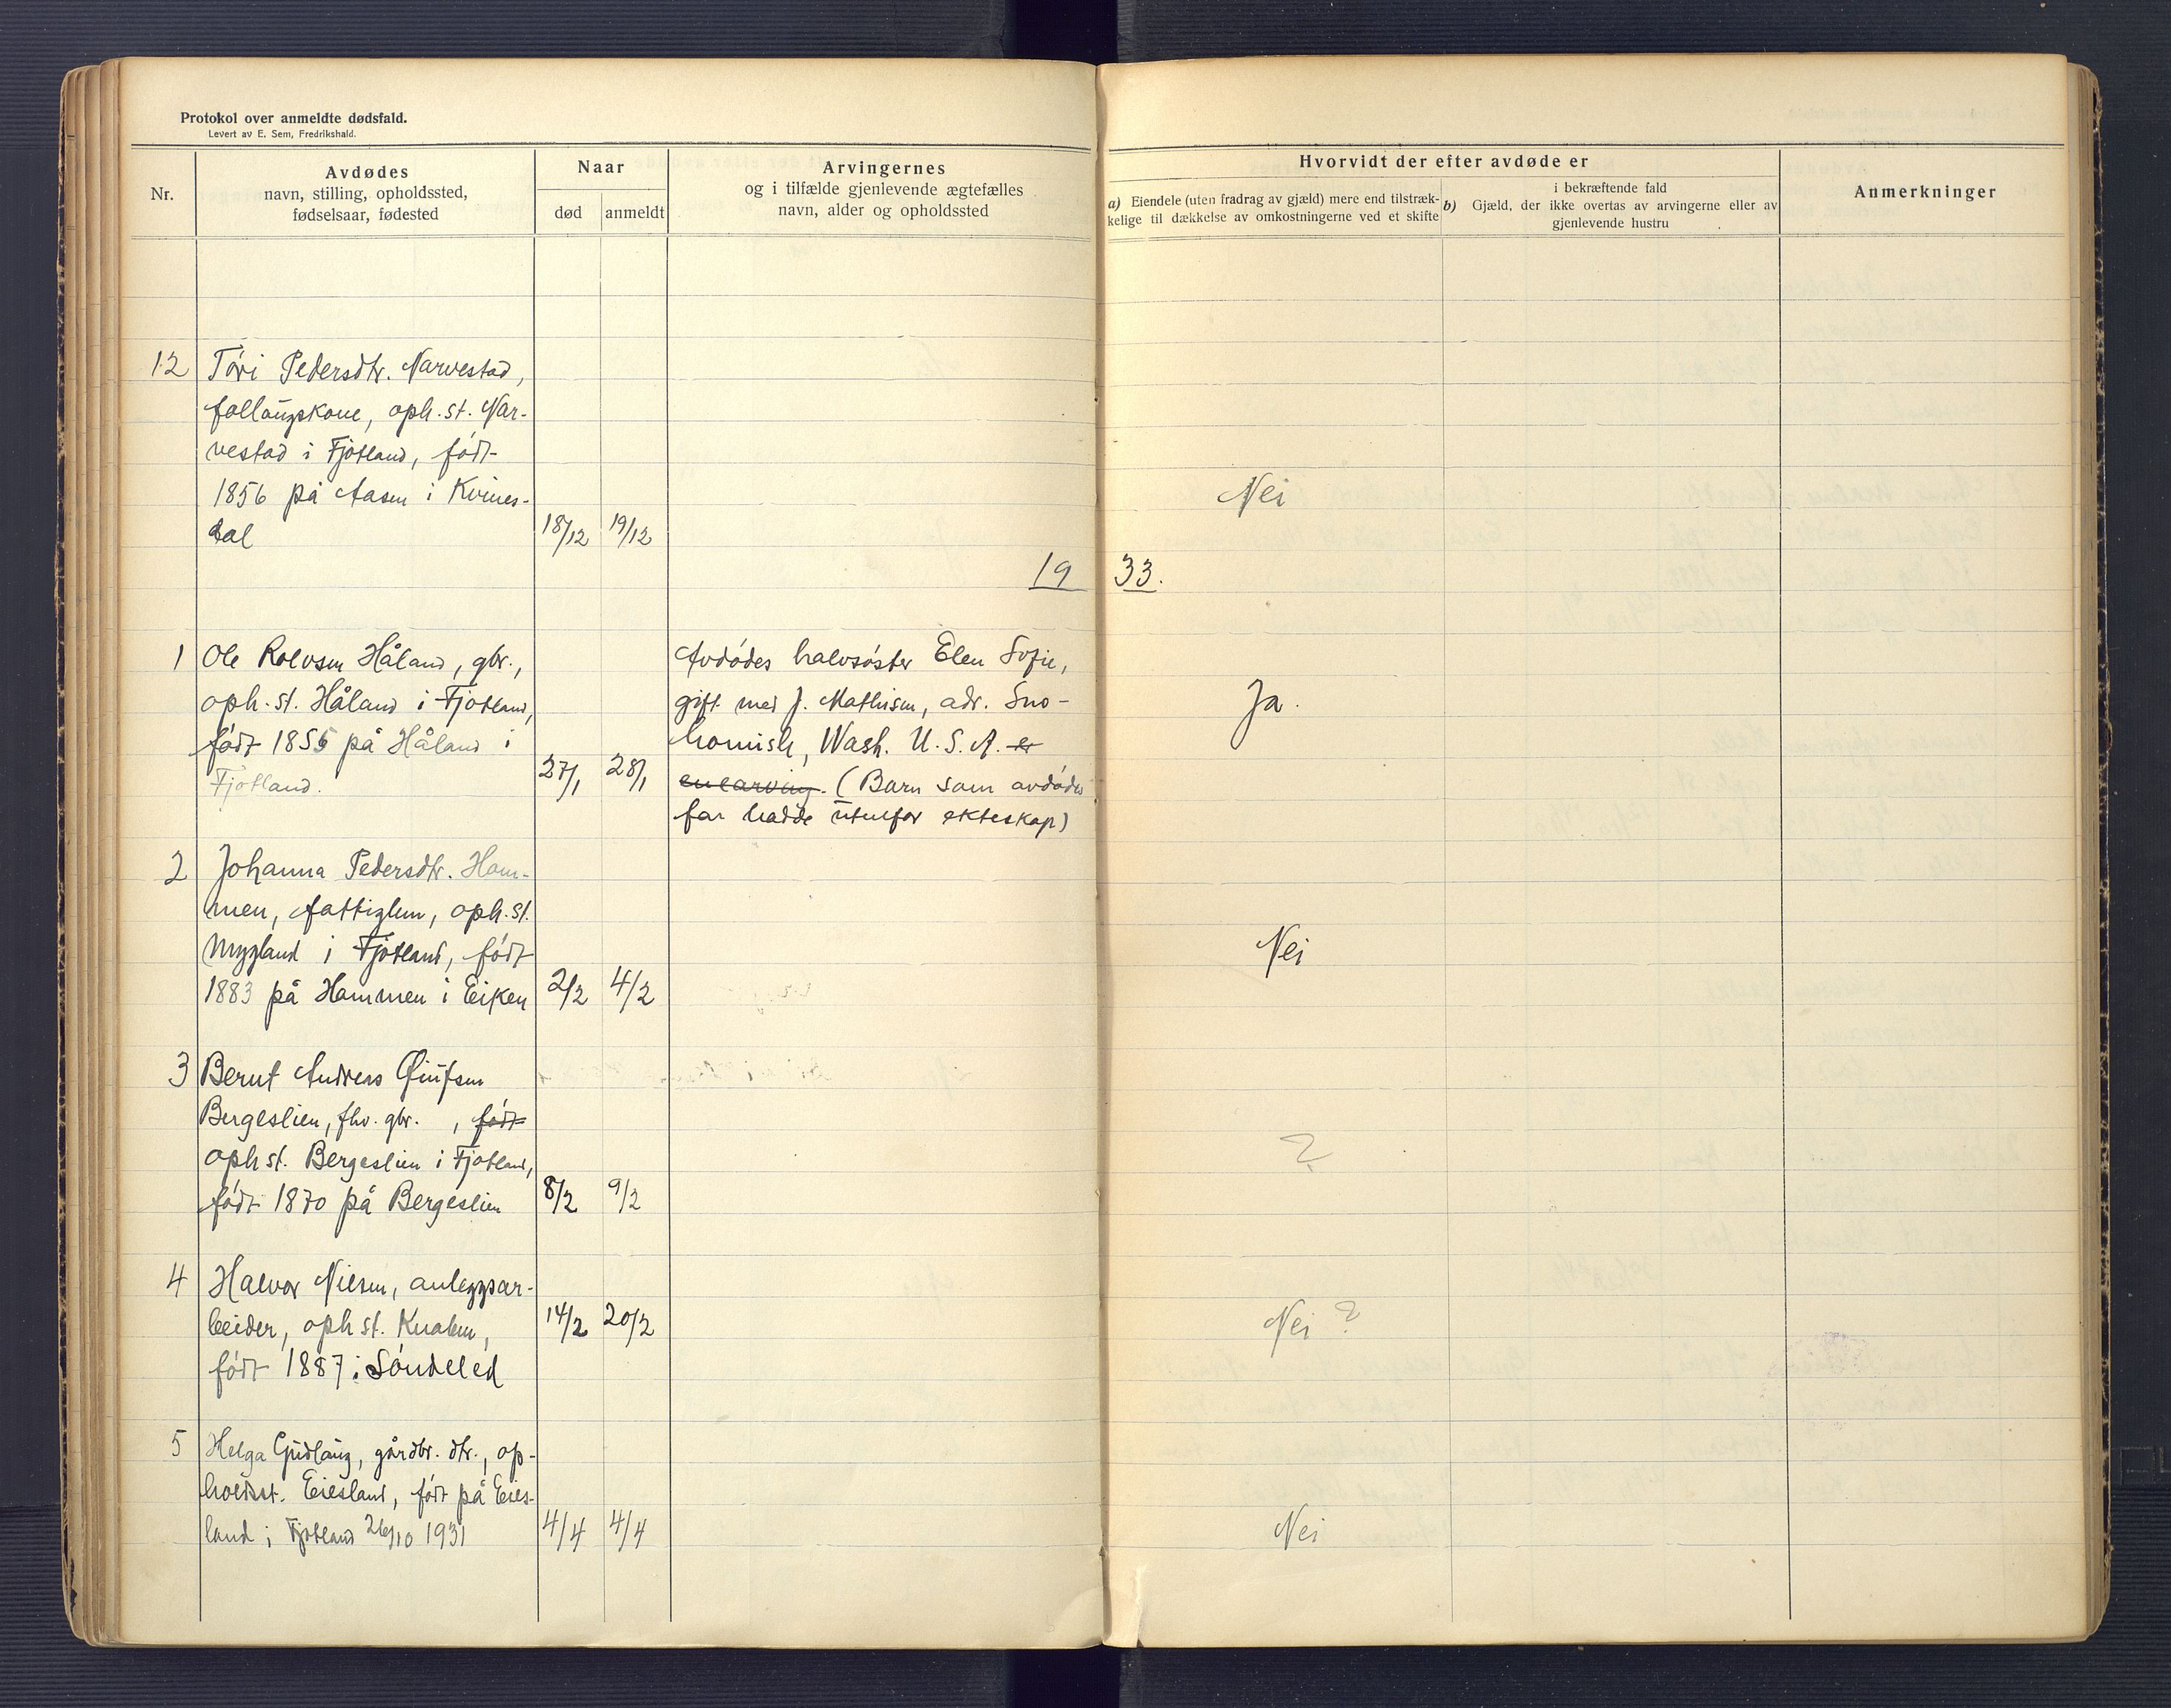 Protokol over anmeldte dødsfald.
Levert av E. Sem, Fredrikshald.
Nr.
Avdødes
navn, stilling, opholdssted,
fødselsaar, fødested
Naar
død
anmeldt
Arvingernes
og i tilfælde gjenlevende ægtefælles
navn, alder og opholdssted
Hvorvidt der efter avdøde er
a) Eiendele (uten fradrag av gjæld) mere end tilstræk-
kelige til dækkelse av omkostningerne ved et skifte
i bekræftende fald
b) Gjæld, der ikke overtas av arvingerne eller av
gjenlevende hustru
Anmerkninger
12 Tøri Pedersdtr. Narvestad,
follaugskone, oph.st. Nar-
vestad i Fjotland, født
1856 på Aasen i Kvines-
dal 18/12 19/12
Nei
19 33.
1 Ole Rolvsen Håland, gbr.,
oph.st. Håland i Fjotland,
født 1855 på Håland i
Fjotland. 27/1 28/1
Avdødes halvsøster Elen Sofie,
gift med J. Mathisen, adr. Sno-
homish, Wash. U.S.A. er
enearving. (Barn som avdødes
far hadde utenfor ekteskap)
Ja.
2 Johanna Pedersdtr. Ham-
men, fattiglem, oph.st.
Mygland i Fjotland, født
1883 på Hammen i Eiken 2/2 4/2
Nei
3 Bernt Andreas
Bergeslien, fhv. gbr. , født
oph st. Bergeslien i Fjotland,
født 1870 på Bergeslien 8/2 9/2
?
4 Halvor Nilsen, anleggsar-
beider, oph st. Knaben,
født 1887 i Søndeled
14/2 20/2
Nei ?
5 Helga Gudlaug, gårdbr. dtr., op-
holdsst. Eiesland, født på Eies-
land i Fjotland 26/10 1931 4/4 4/4
Nei